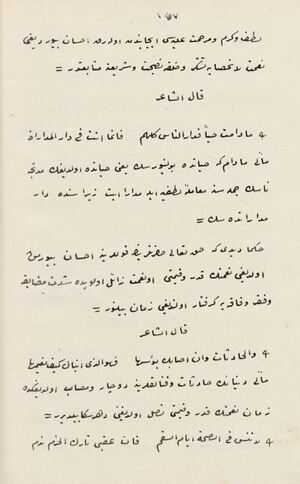 ١٥٧
لطف وكرم ومرحمت عليه سى ايجابندن اولەرق احسان بيورديغى
نعمت لا تحصايه تشكر وخلقه نصيحت وشريعته متابعتدر =
قال الشاعر
﴿ ما دامت حياً فدار الناس كلهم فانما انت فى دار المداراة
مآلى مادام كه حياتده بولنيورسك يعنى حياتده اولديغك مدتجه
ناسك جمله سنه معامله لطفيه ايله مدارا ايت زيرا سنده دار
مداراتده سك =
حكما ديدى كه حق تعالى حضرتلرينك قوللرينه احسان بيورمش
اولديغى نعمتك قدر وقيمتى اول نعمت زائل اولوبده شدت مضايقه
وفقر وفاقه يه گرفتار اولنديغى زمان بيلنور =
قال الشاعر
﴿ والحادثات وان اصابك بؤسها فهو الذى انباك كيف نعيمها
مآلى دنيانك حادثات وقتا دوچار ومصاب اولنديغكده
زمان نعمتك قدر وقيمتى نصل اولديغنى دخى بيلديرر =
﴿ لا تنس فى الصحة ايام السقم فان عقبى تارك الحزم ندم